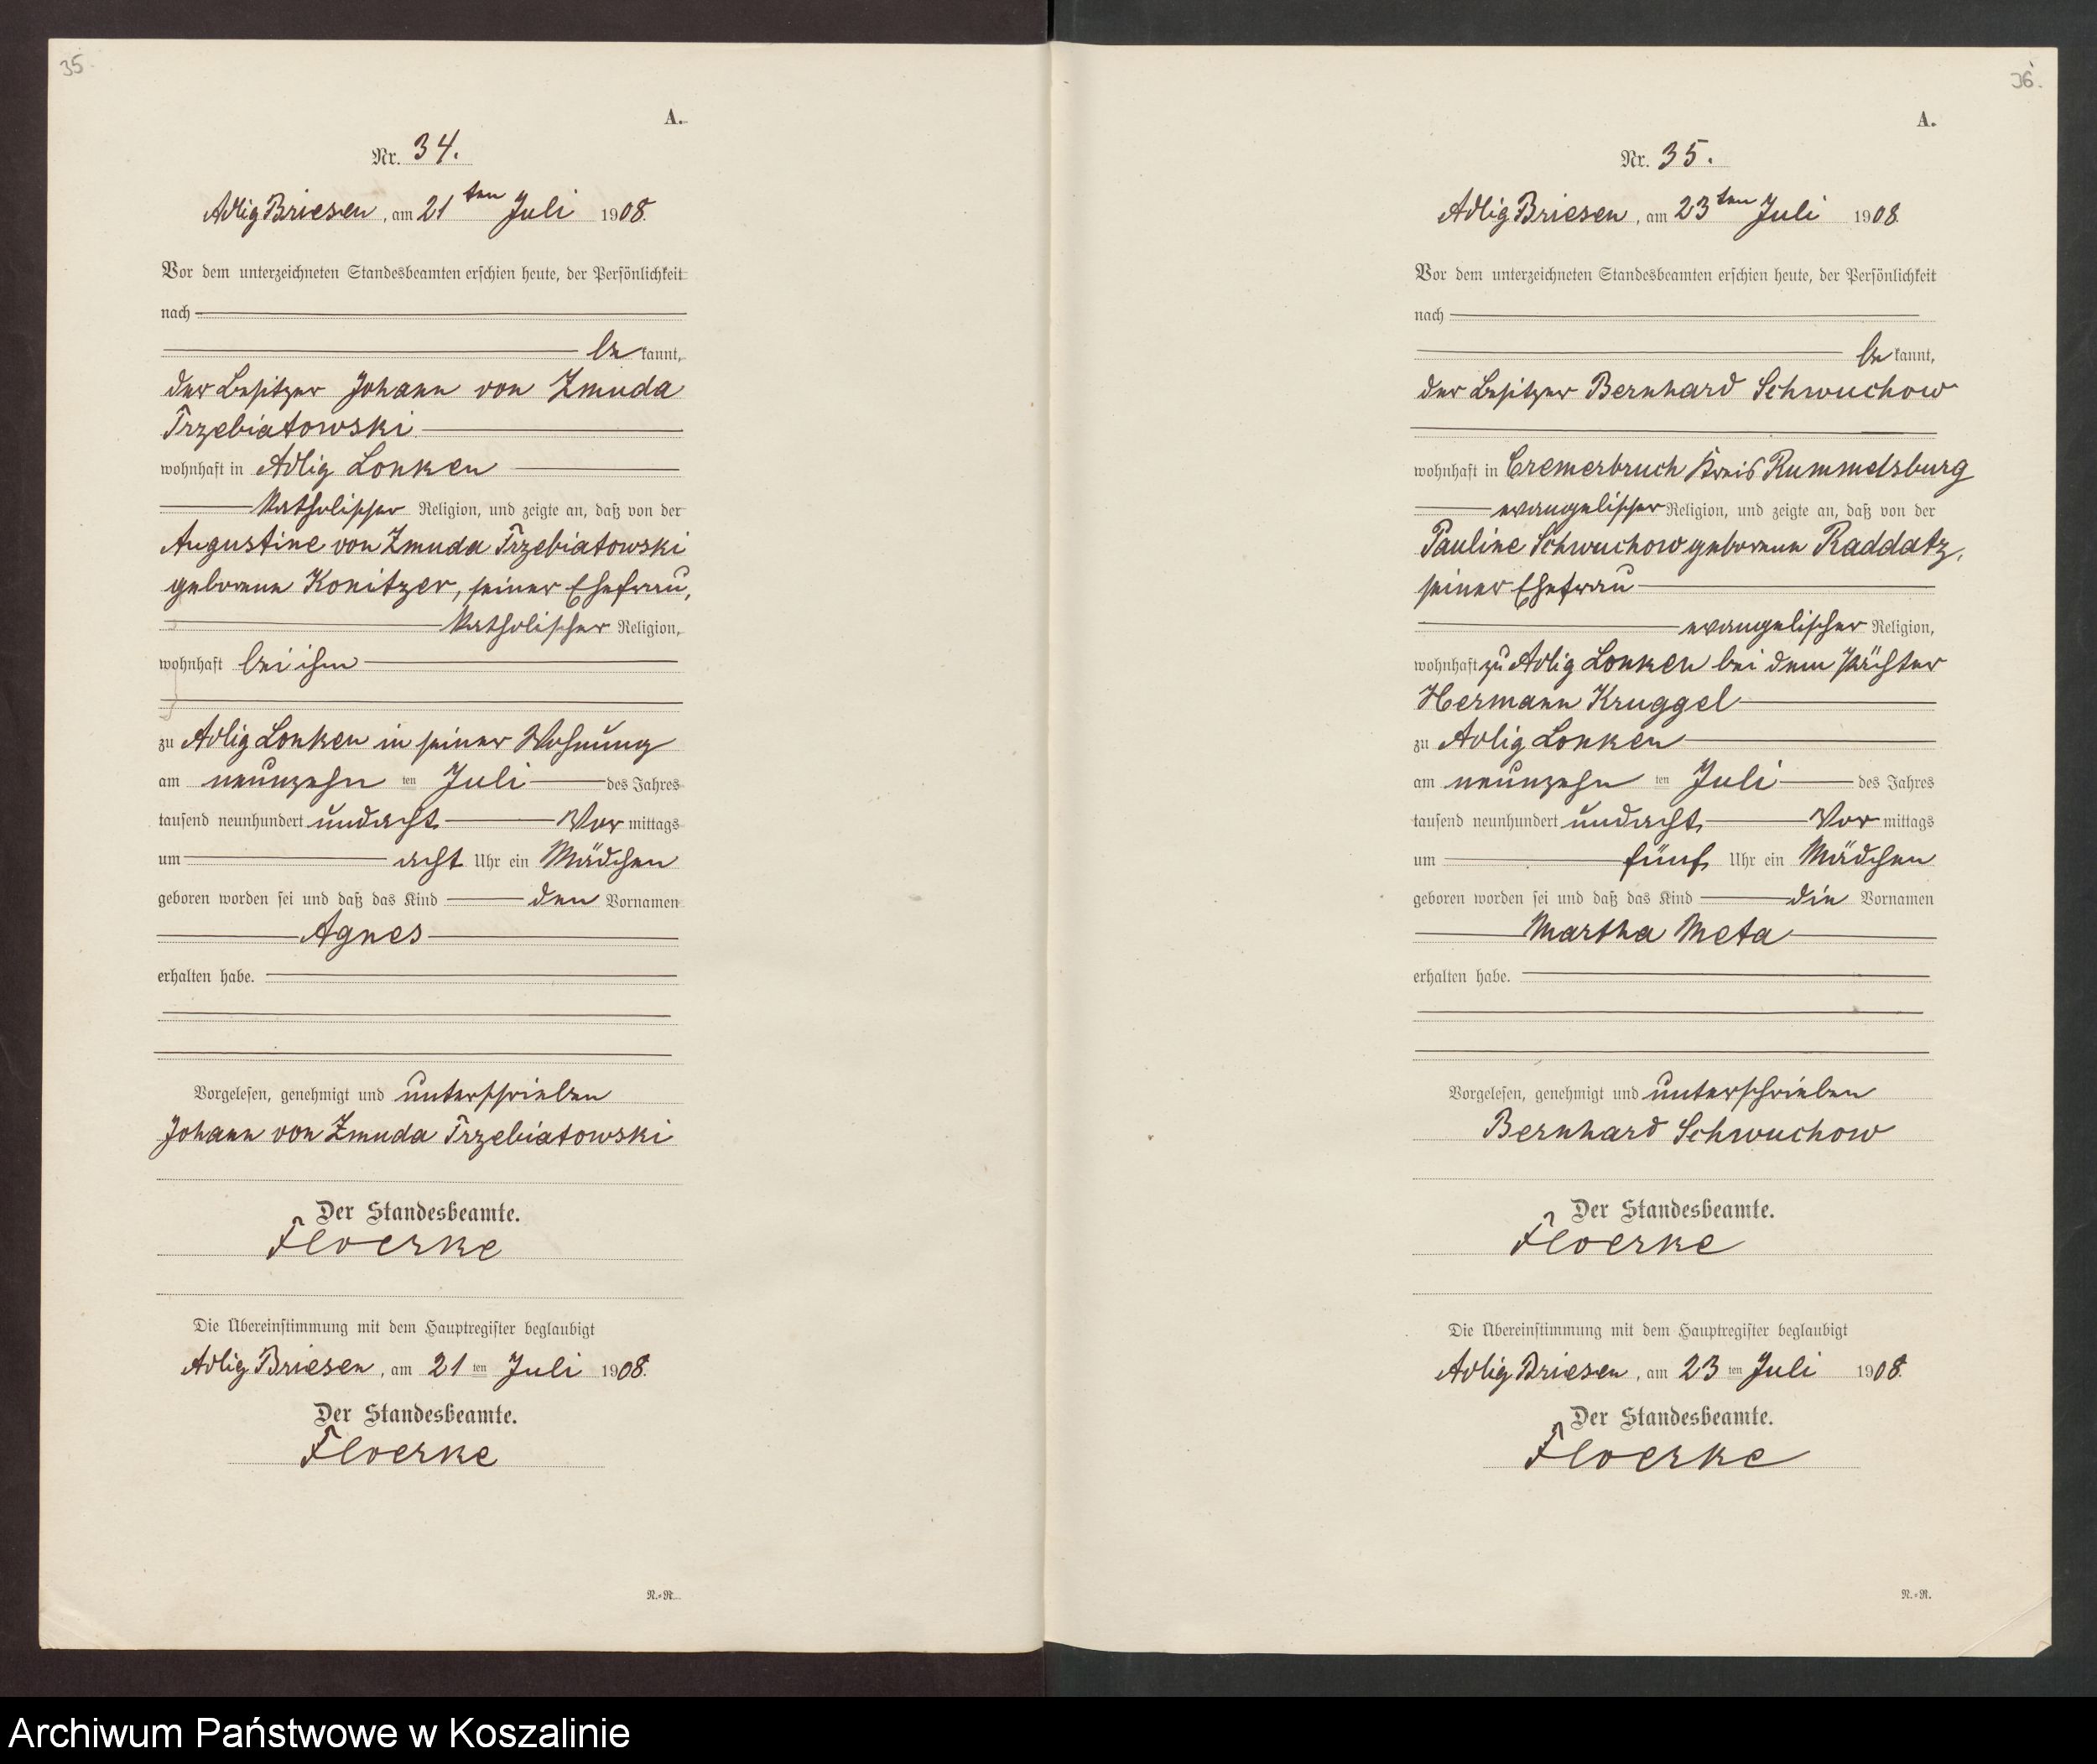 35.
A.
Nr. 34.
Adlig Briesen, am 21ten Juli 1908.
Vor dem unterzeichneten Standesbeamten erschien heute, der Persönlichkeit
nach
be kannt,
der Besitzer Johann von Zmuda
Trzebiatowski
wohnhaft in Adlig Lonken
katholischer Religion, und zeigte an, daß von der
Augustine von Zmuda Trzebiatowski
geborene Konitzer, seiner Ehefrau,
katholischer Religion,
wohnhaft bei ihm
zu Adlig Lonken in seiner Wohnung
am neunzehn ten Juli des Jahres
tausend neunhundert undacht Vor mittags
um acht Uhr ein Mädchen
geboren worden sei und daß das Kind den Vornamen
Agnes
erhalten habe.
Vorgelesen, genehmigt und unterschrieben
Johann von Zmuda Trzebiatowski
Der Standesbeamte.
Floerke
Die Übereinstimmung mit dem Hauptregister beglaubigt
Adlig Briesen, am 21 ten Juli 1908.
Der Standesbeamte.
Floerke
N.=R.
36.
A.
Nr. 35.
Adlig Briesen, am 23ten Juli 1908.
Vor dem unterzeichneten Standesbeamten erschien heute, der Persönlichkeit
nach
be kannt,
der Besitzer Bernhard Schwuchow
wohnhaft in Cremerbruch Kreis Rummelsburg
evangelischer Religion, und zeigte an, daß von der
Pauline Schwuchow geborene Raddatz,
seiner Ehefrau
evangelischer Religion,
wohnhaft zu Adlig Lonken bei dem Pächter
Hermann Kruggel
zu Adlig Lonken
am neunzehn ten Juli des Jahres
tausend neunhundert undacht Vor mittags
um fünf Uhr ein Mädchen
geboren worden sei und daß das Kind die Vornamen
Martha Meta
erhalten habe.
Vorgelesen, genehmigt und unterschrieben
Bernhard Schwuchow
Der Standesbeamte.
Floerke
Die Übereinstimmung mit dem Hauptregister beglaubigt
Adlig Briesen, am 23 ten Juli 1908.
Der Standesbeamte.
Floerke
N.=R.
Archiwum Państwowe w Koszalinie